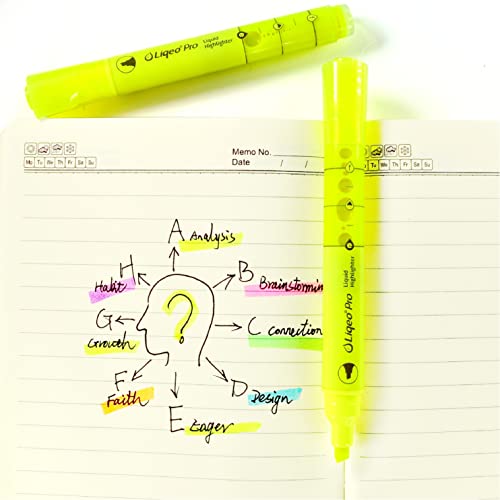 Liqeo Pro Liquid Highlighter
Memo No.
Date / /
Mo Tu We Th Fr Sa Su
Tu We Th Fr Sa Su
A Analysis
H Habit
B Brainstormin
G Growth
C Connection
F Faith
D Design
E Eager
?
Liqeo Pro Liquid Highlighter